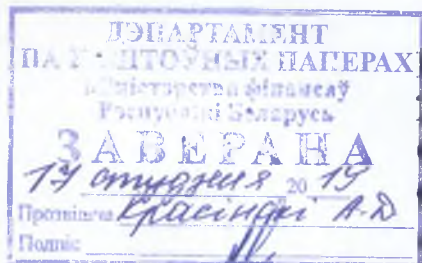 ДЭПАРТАМЕНТ
ПА КАШТОЎНЫХ ПАПЕРАХ
Міністэрства фінансаў
Рэспублікі Беларусь
ЗАВЕРАНА
17 студзеня 2019
Прозвішча Красінскі А.Д
Подпіс